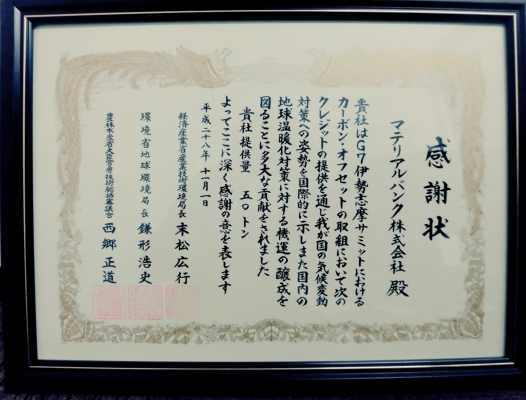 感謝状
マテリアルバンク株式会社 殿
貴社はG7伊勢志摩サミットにおける
カーボン・オフセットの取組において次の
クレジットの提供を通じ我が国の気候変動
対策への姿勢を国際的に示しまた国内の
地球温暖化対策に対する機運の醸成を
図ることに多大な貢献をされました
貴社提供量 五〇トン
よってここに深く感謝の意を表します
平成二十八年 十一月一日
経済産業省産業技術環境局長 末松広行
環境省地球環境局長 鎌形浩史
農林水産省大臣官房技術総括審議官 西郷正道